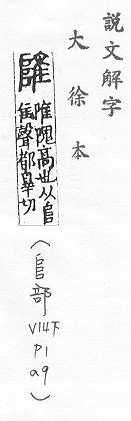 說文解字
大徐本
陮 陮隗高也从𨸏
隹聲都辠切
（𨸏部 V14下 P1 a9）